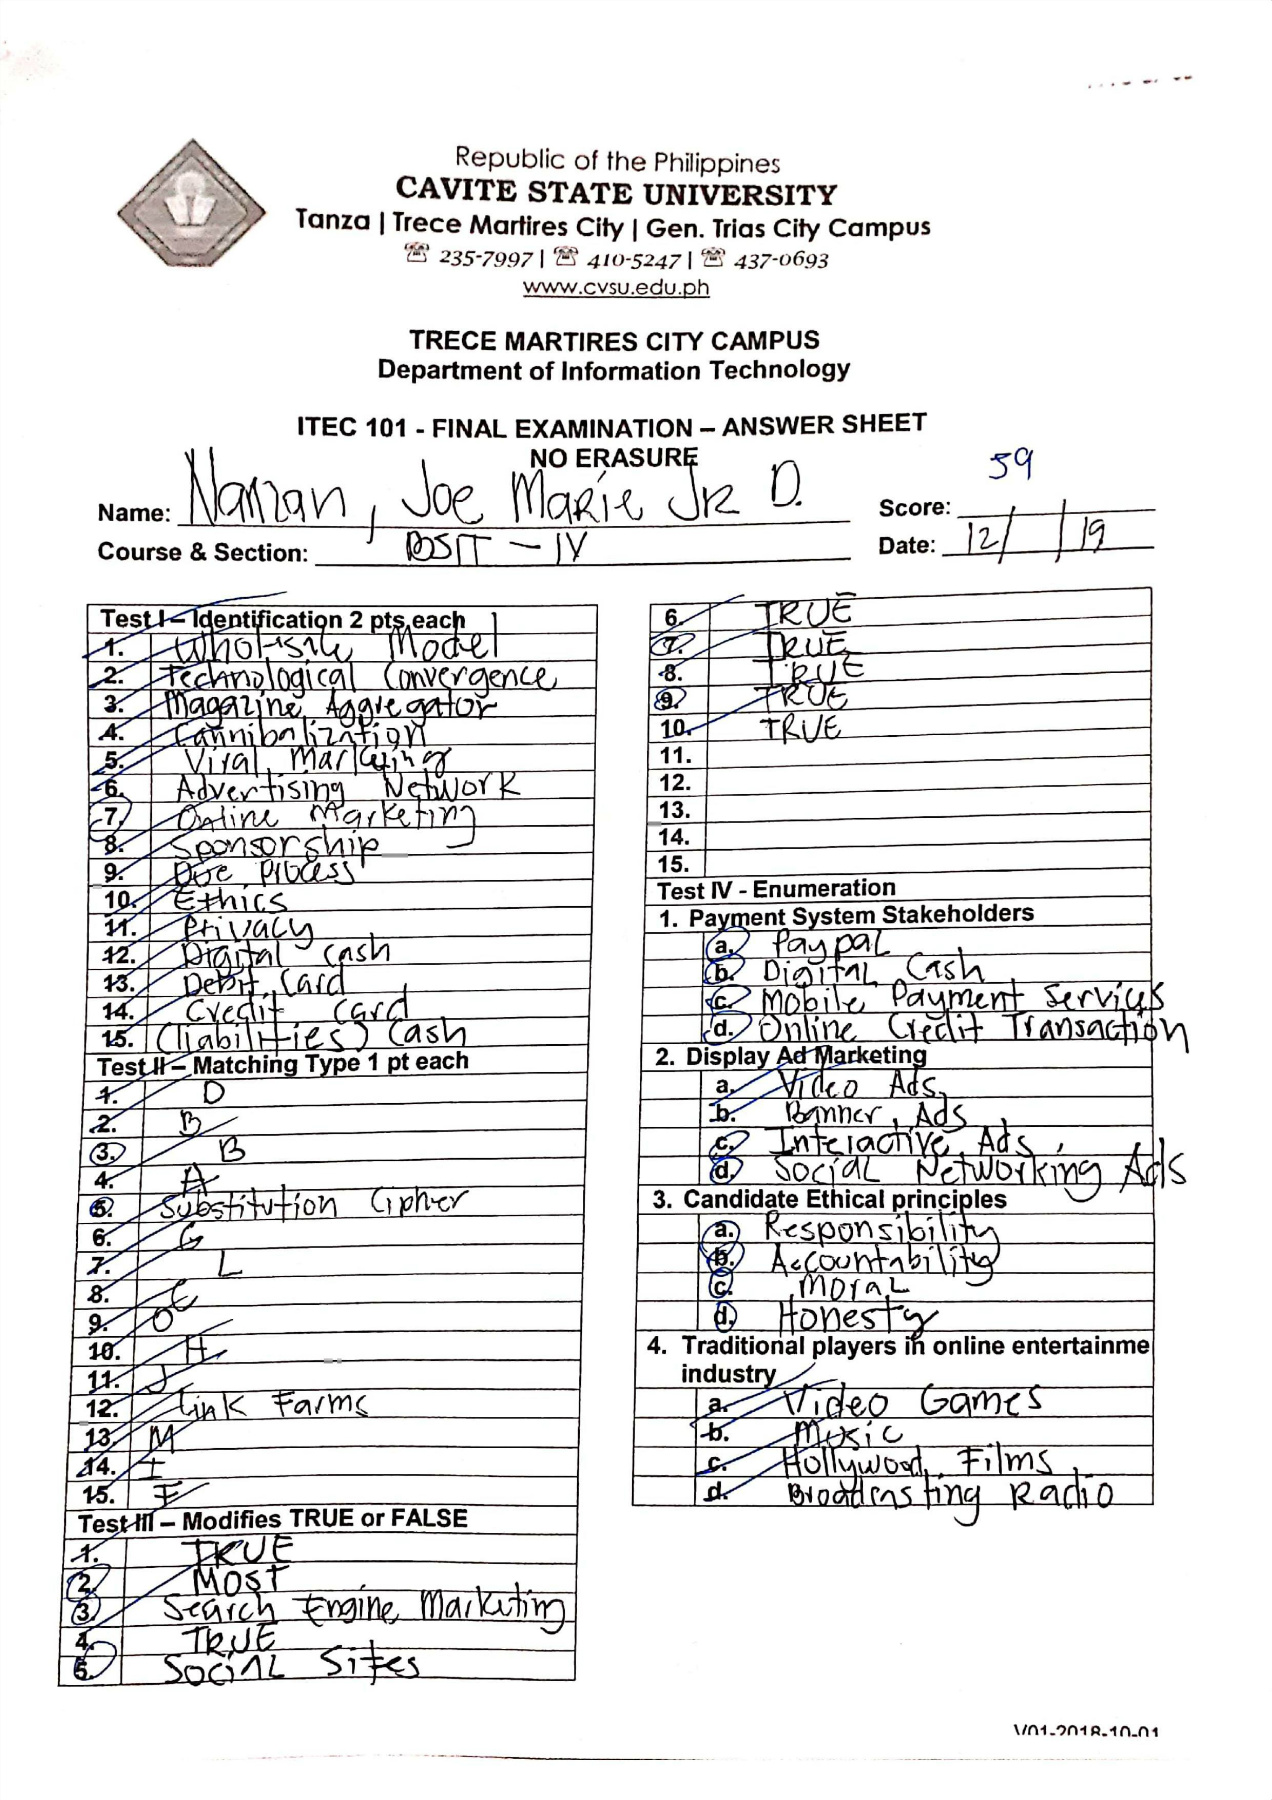 Republic of the Philippines
CAVITE STATE UNIVERSITY
Tanza | Trece Martires City | Gen. Trias City Campus
☏ 235-7997 | ☏ 410-5247 | ☏ 437-0693
www.cvsu.edu.ph
TRECE MARTIRES CITY CAMPUS
Department of Information Technology
ITEC 101 - FINAL EXAMINATION – ANSWER SHEET
NO ERASURE
Name: Joe Marie Jr D.
Score: 59
Course & Section: BSIT - IV
Date: 12/ /19
Test I – Identification 2 pts each
1. Wholesale Model
2. Technological Convergence
3. Magazine Aggregator
4. Cannibalization
5. Viral Marketing
6. Advertising Network
7. Online Marketing
8. Sponsorship
9. Due Process
10. Ethics
11. Privacy
12. Digital Cash
13. Debit Card
14. Credit Card
15. (Liabilities) Cash
Test II – Matching Type 1 pt each
1. D
2. B
3. B
4. A
5. Substitution Cipher
6. G
7. L
8. C
9. O
10. H
11. J
12. Link Farms
13. M
14. I
15. F
Test III – Modifies TRUE or FALSE
1. TRUE
2. MOST
3. Search Engine Marketing
4. TRUE
5. Social Sites
6. TRUE
7. TRUE
8. TRUE
9. TRUE
10. TRUE
11.
12.
13.
14.
15.
Test IV - Enumeration
1. Payment System Stakeholders
a. Paypal
b. Digital Cash
c. Mobile Payment Services
d. Online Credit Transaction
2. Display Ad Marketing
a. Video Ads
b. Banner Ads
c. Interactive Ads
d. Social Networking Ads
3. Candidate Ethical principles
a. Responsibility
b. Accountability
c. Moral
d. Honesty
4. Traditional players in online entertainme
industry
a. Video Games
b. Music
c. Hollywood Films
d. Broadcasting Radio
V01-2018-10-01